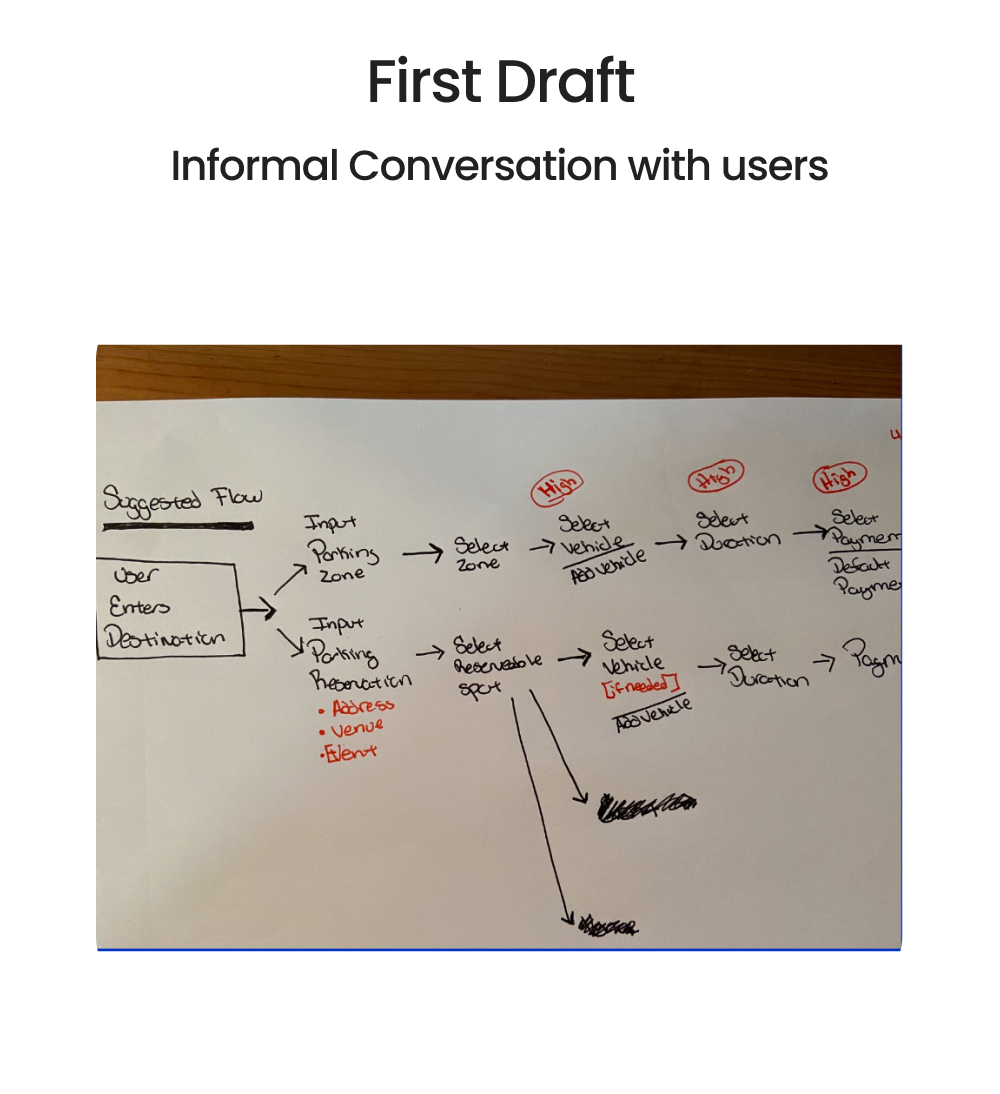 First Draft
Informal Conversation with users
Suggested Flow
User
Enters
Destination
Input
Parking
Zone
Select
Zone
High
Select
Vehicle
Add vehicle
High
Select
Duration
High
Select
Paymen
Default
Payme
Input
Parking
Reservation
• Address
• Venue
• Event
Select
Reserveable
spot
Select
Vehicle
[if needed]
Add vehicle
Select
Duration
Paym